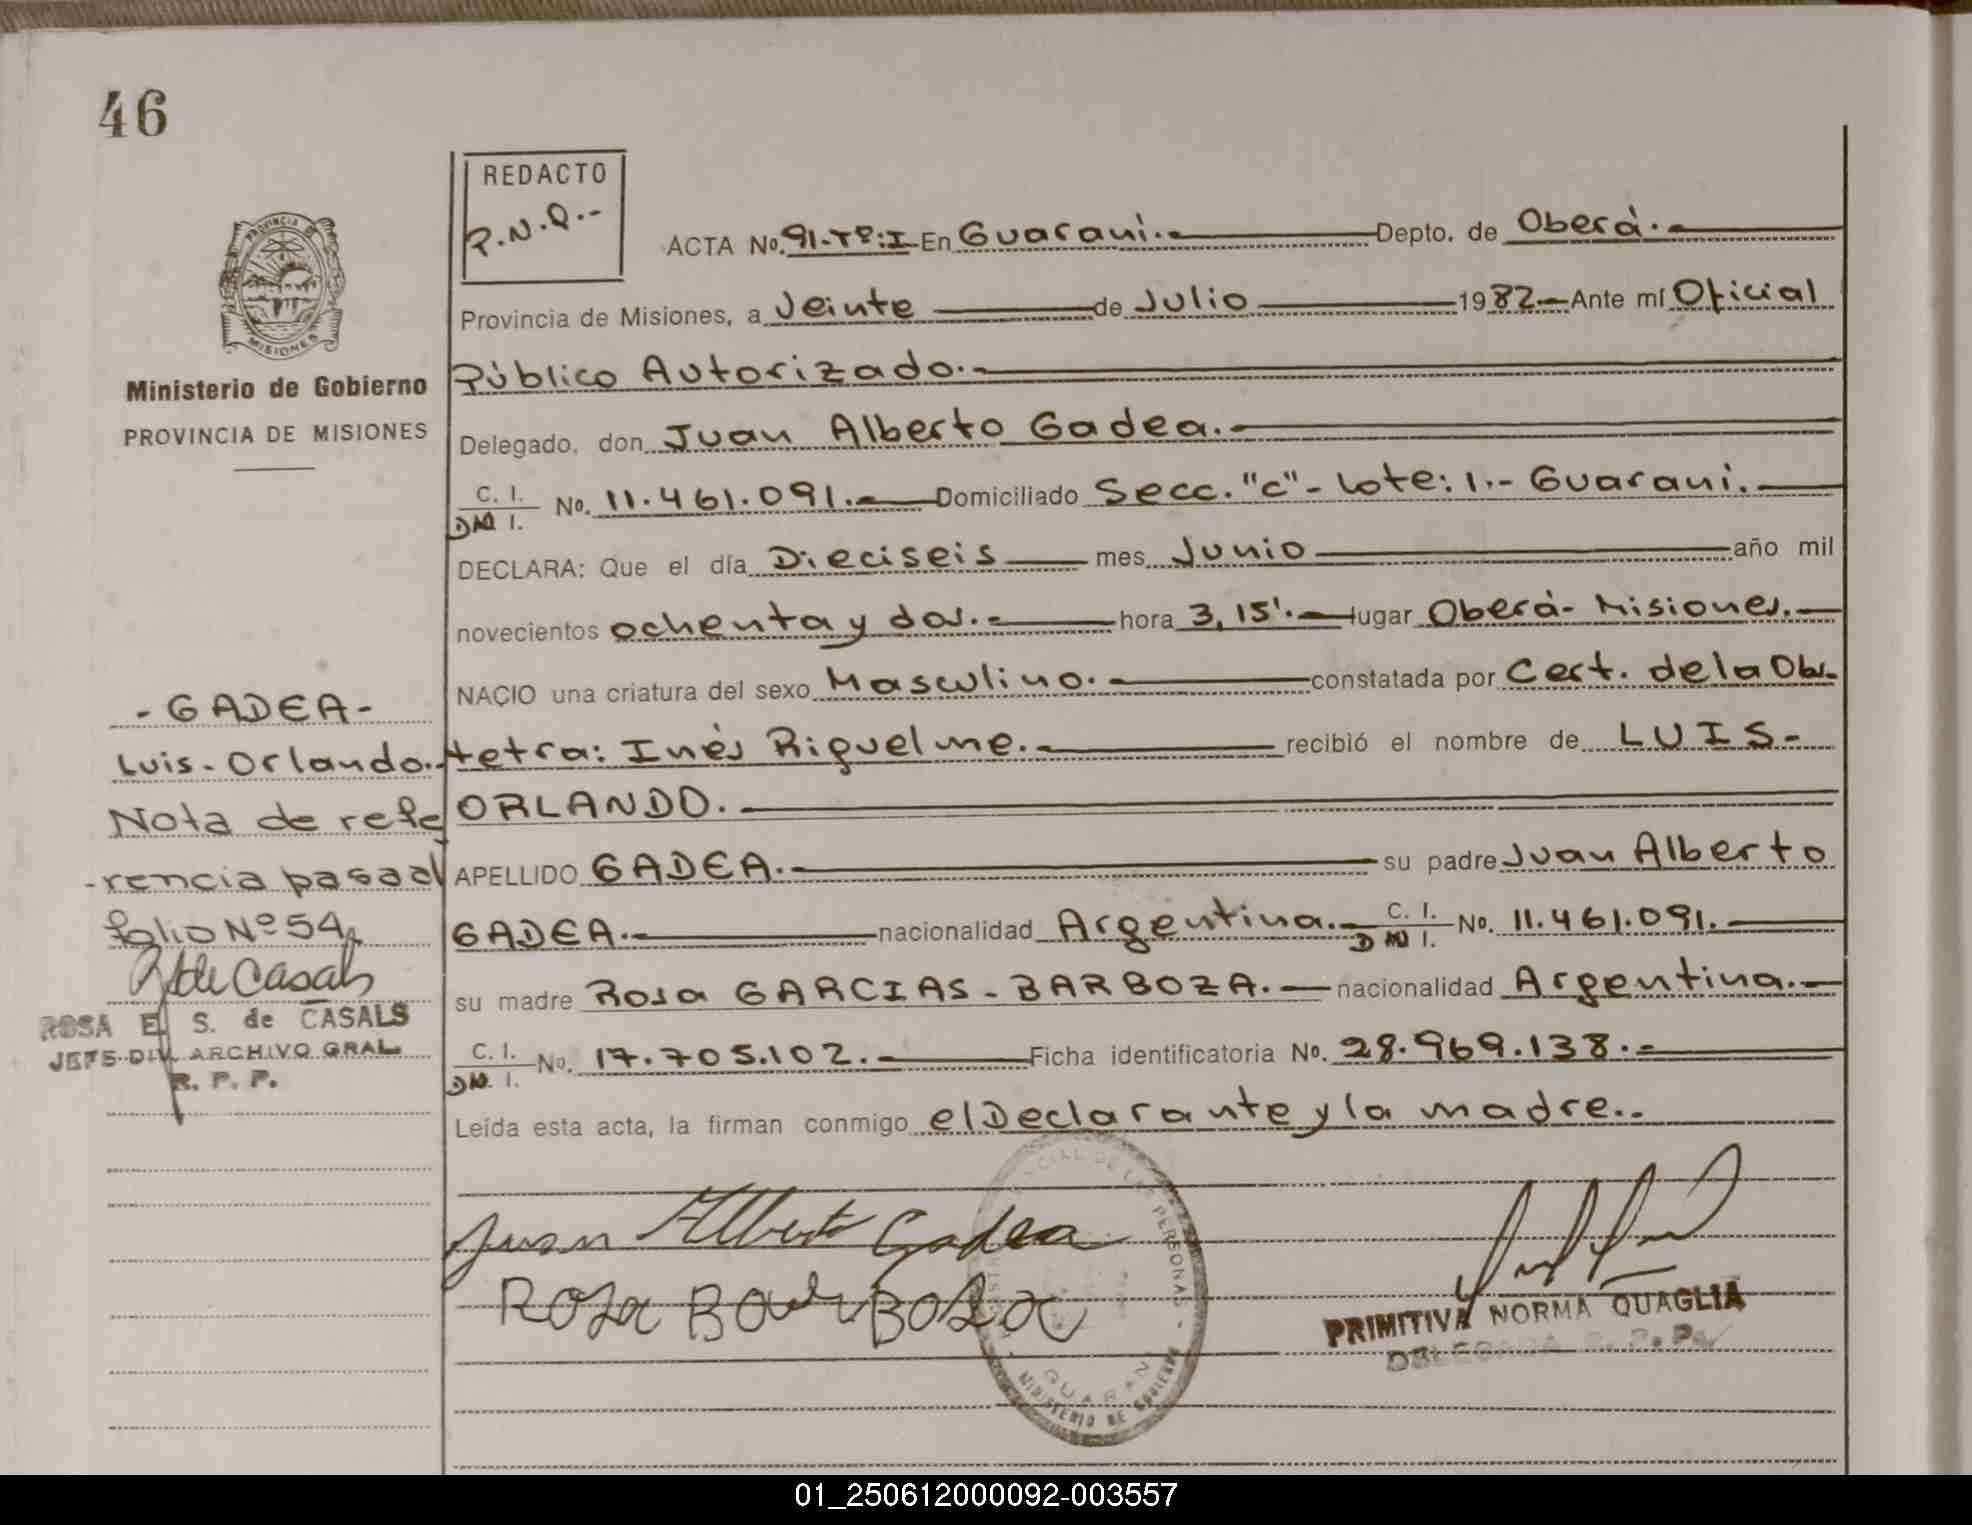 46
REDACTO
P.N.Q.-
ACTA No. 91-Tº:I En Guaraní.- Depto. de Oberá.-
Provincia de Misiones, a Veinte de Julio 1982.- Ante mí Oficial
Público Autorizado.-
Delegado, don Juan Alberto Gadea.-
C. I. DNI. No. 11.461.091.- Domiciliado Secc. "C"- Lote: 1.- Guaraní.-
DECLARA: Que el día Dieciseis mes Junio año mil
novecientos ochenta y dos.- hora 3,15'.- lugar Oberá- Misiones.-
NACIO una criatura del sexo Masculino.- constatada por Cert. de la Obs-
tetra: Inés Riquelme.- recibió el nombre de LUIS-
ORLANDO.-
APELLIDO GADEA.- su padre Juan Alberto
GADEA.- nacionalidad Argentina.- C. I. DNI. No. 11.461.091.-
su madre Rosa GARCIAS-BARBOZA.- nacionalidad Argentina.-
C. I. DNI. No. 17.705.102.- Ficha identificatoria No. 28.969.138.-
Leída esta acta, la firman conmigo el Declarante y la madre..
Juan Alberto Gadea
Rosa Barboza
PRIMITIVA NORMA QUAGLIA
DELEGADA R. P. P.
PROVINCIAL DE LAS PERSONAS
GUARANI
MINISTERIO DE GOBIERNO
PROVINCIA DE
MISIONES
Ministerio de Gobierno
PROVINCIA DE MISIONES
-GADEA-
Luis-Orlando.-
Nota de refe
-rencia pasad
folio Nº 54
R de Casals
ROSA E. S. de CASALS
JEFE DIV. ARCHIVO GRAL
R. P. P.
01_250612000092-003557